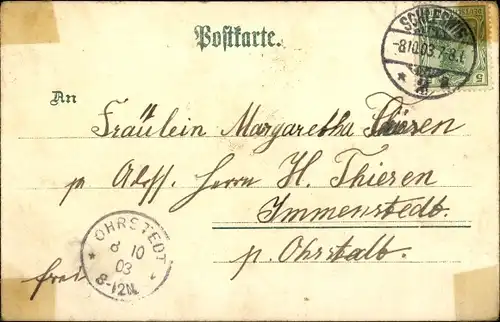 Postkarte.
SCHLESWIG
-8.10.03.7-8.V.
An
5
Fräulein Margaretha Thiesen
p. Adss. Herrn H. Thiesen
Immenstedt.
p. Ohrstalt.
OHRSTEDT
8 10
03
8-12N.
frei